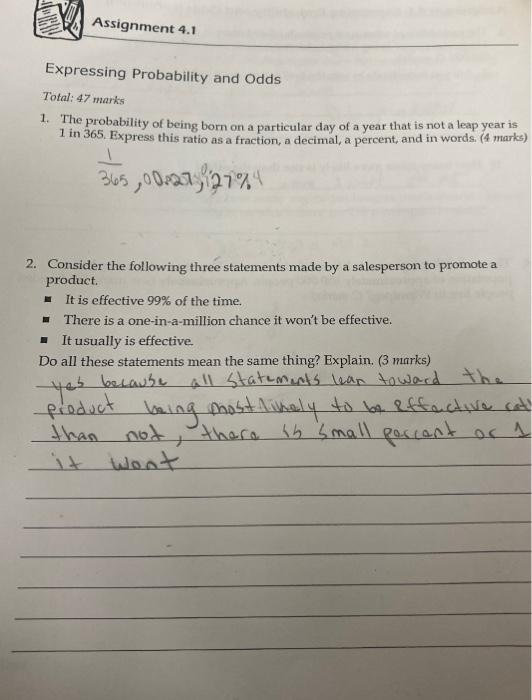 Assignment 4.1
Expressing Probability and Odds
Total: 47 marks
1. The probability of being born on a particular day of a year that is not a leap year is
1 in 365. Express this ratio as a fraction, a decimal, a percent, and in words. (4 marks)
1
365
2. Consider the following three statements made by a salesperson to promote a
product.
■ It is effective 99% of the time.
■ There is a one-in-a-million chance it won't be effective.
■ It usually is effective.
Do all these statements mean the same thing? Explain. (3 marks)
yes because all statements lean toward the
product being most likely to be effective
than not, there is small percent or 1
it wont